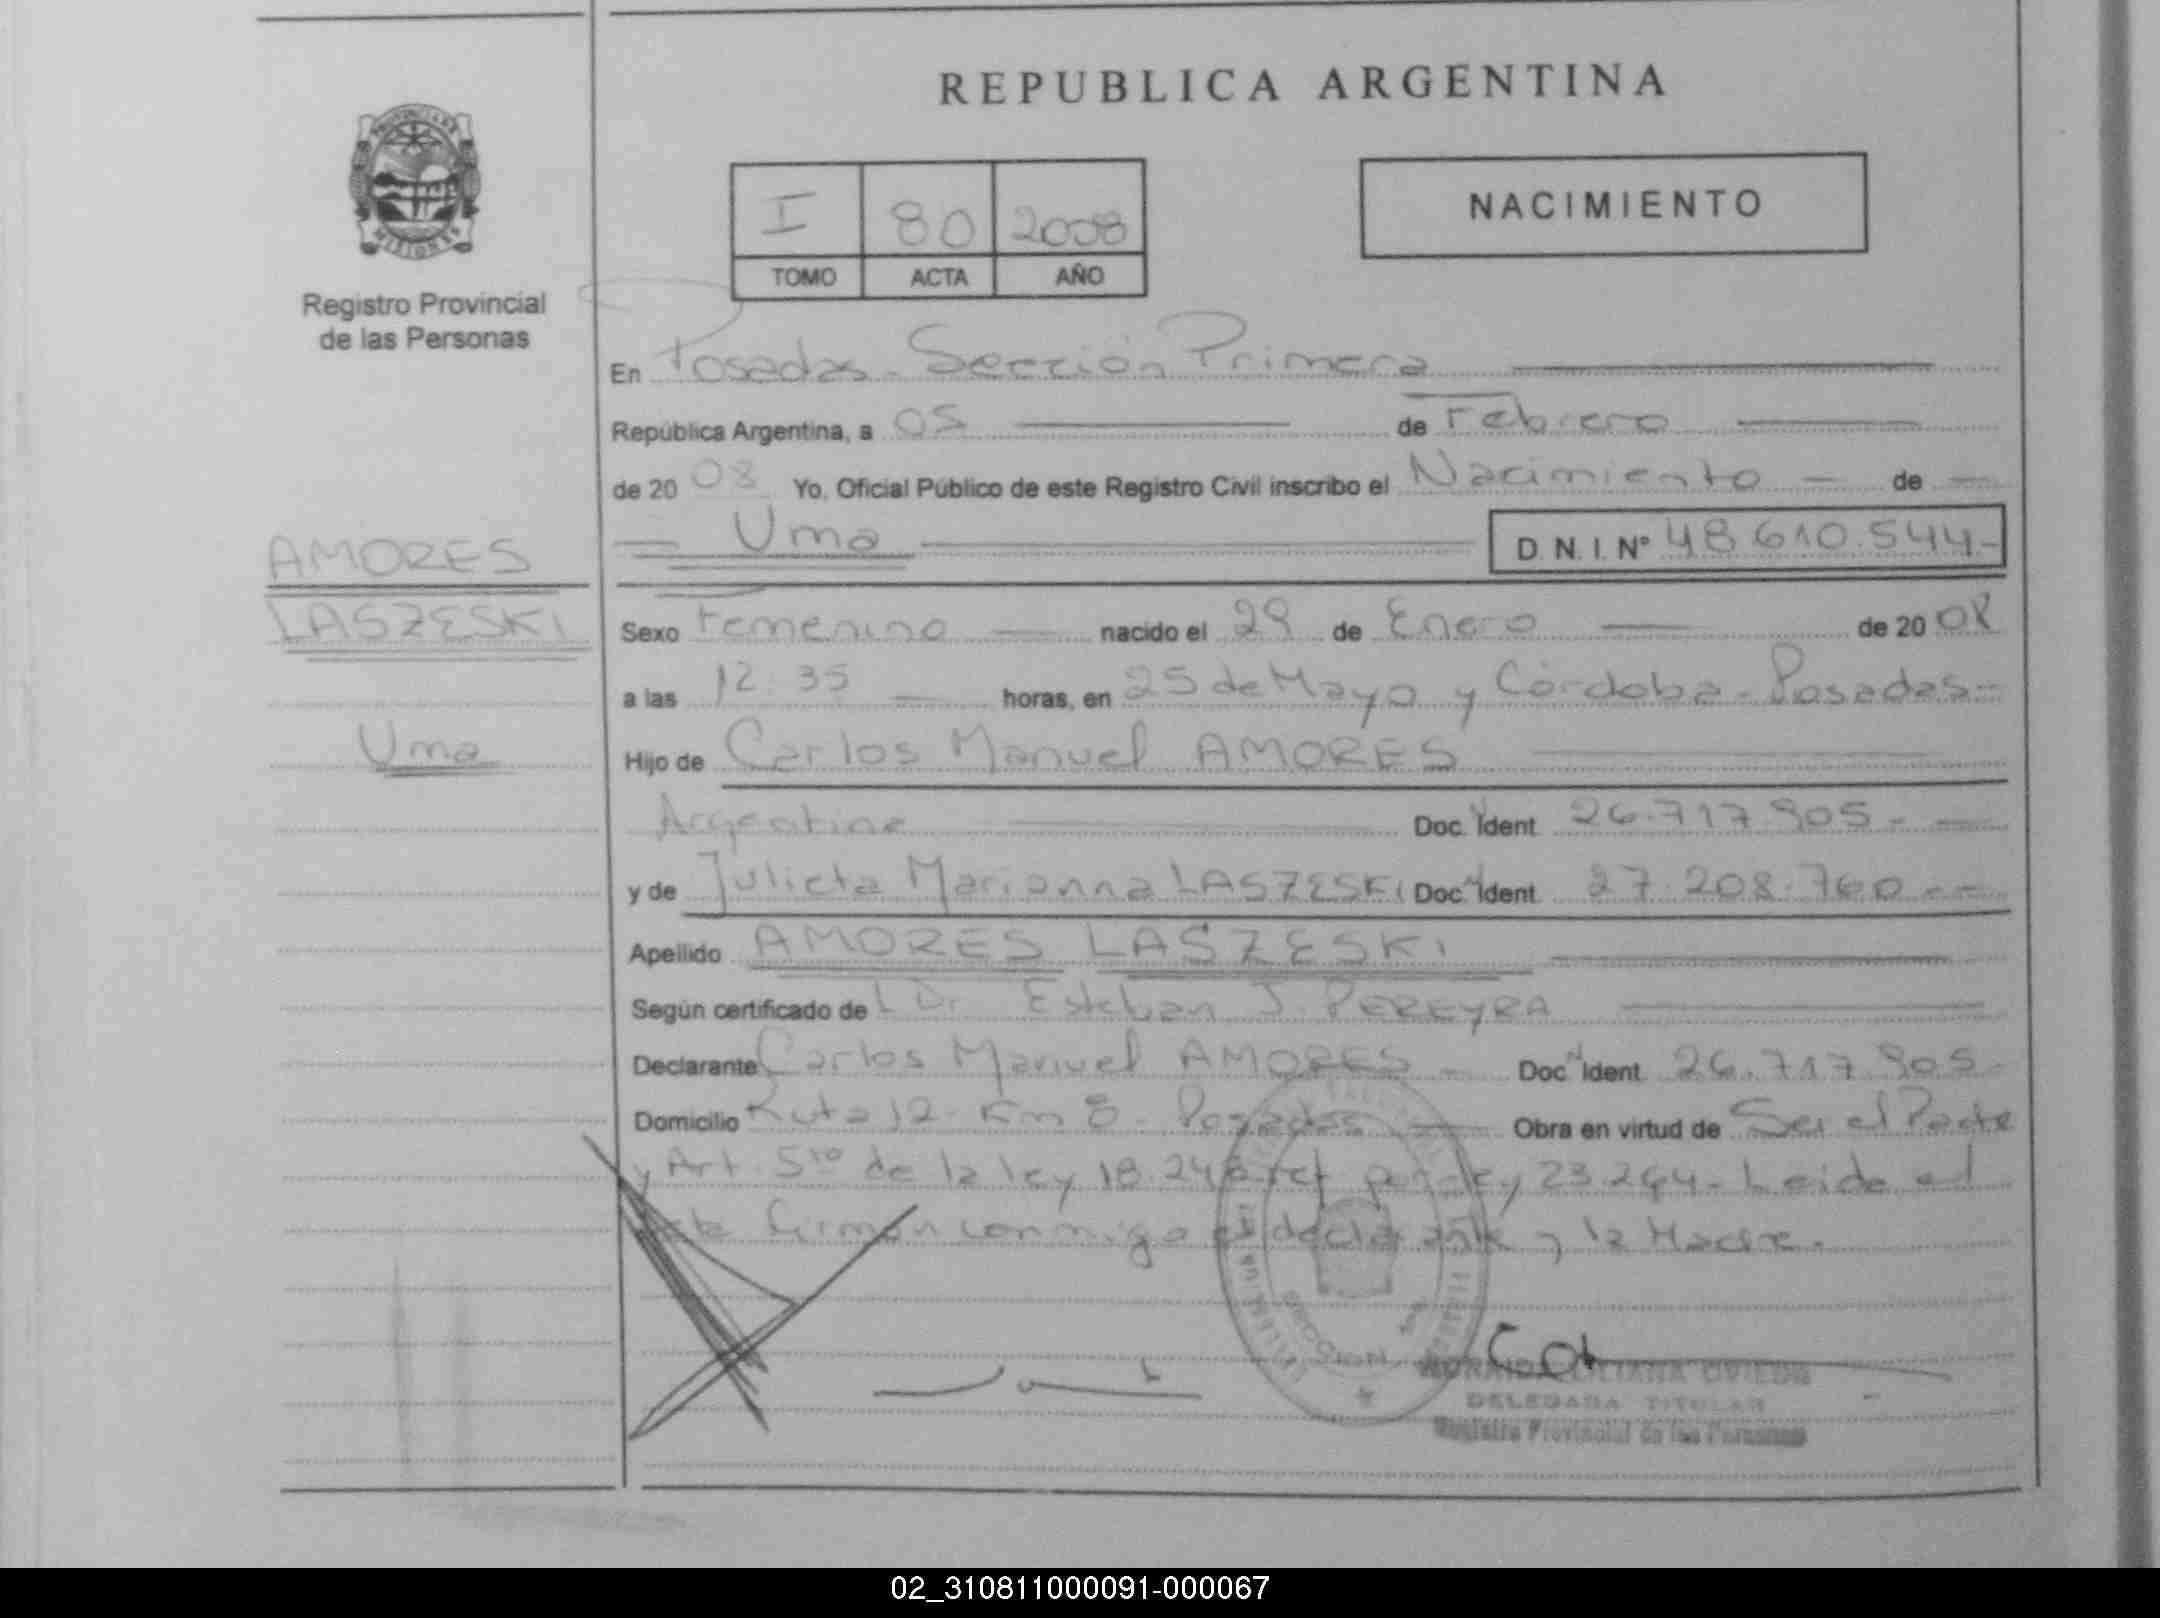 REPUBLICA ARGENTINA
PROVINCIA DE
MISIONES
Registro Provincial
de las Personas
I 80 2008
TOMO ACTA AÑO
NACIMIENTO
En Posadas - Sección Primera
República Argentina, a 05 de Febrero
de 20 08 Yo, Oficial Público de este Registro Civil inscribo el Nacimiento de
Uma D.N.I. Nº 48.610.544-
AMORES
LASZESKI
Uma
Sexo Femenino nacido el 29 de Enero de 20 08
a las 12:35 horas, en 25 de Mayo y Córdoba - Posadas-
Hijo de Carlos Manuel AMORES
Argentina Doc. Ident. 26.717.905-
y de Julieta Marianna LASZESKI Doc. Ident. 27.208.760--
Apellido AMORES LASZESKI
Según certificado de l Dr Esteban J. PEREYRA
Declarante Carlos Manuel AMORES Doc. Ident. 26.717.905-
Domicilio Ruta 12 - Km 8 - Posadas Obra en virtud de Ser el Padre
y Art. 5to de la ley 18.248 ref por ley 23.264 - Leida el
acta firman conmigo el declarante y la Madre.
LILIANA OVIEDO
DELEGADA TITULAR
Registro Provincial de las Personas
02_310811000091-000067